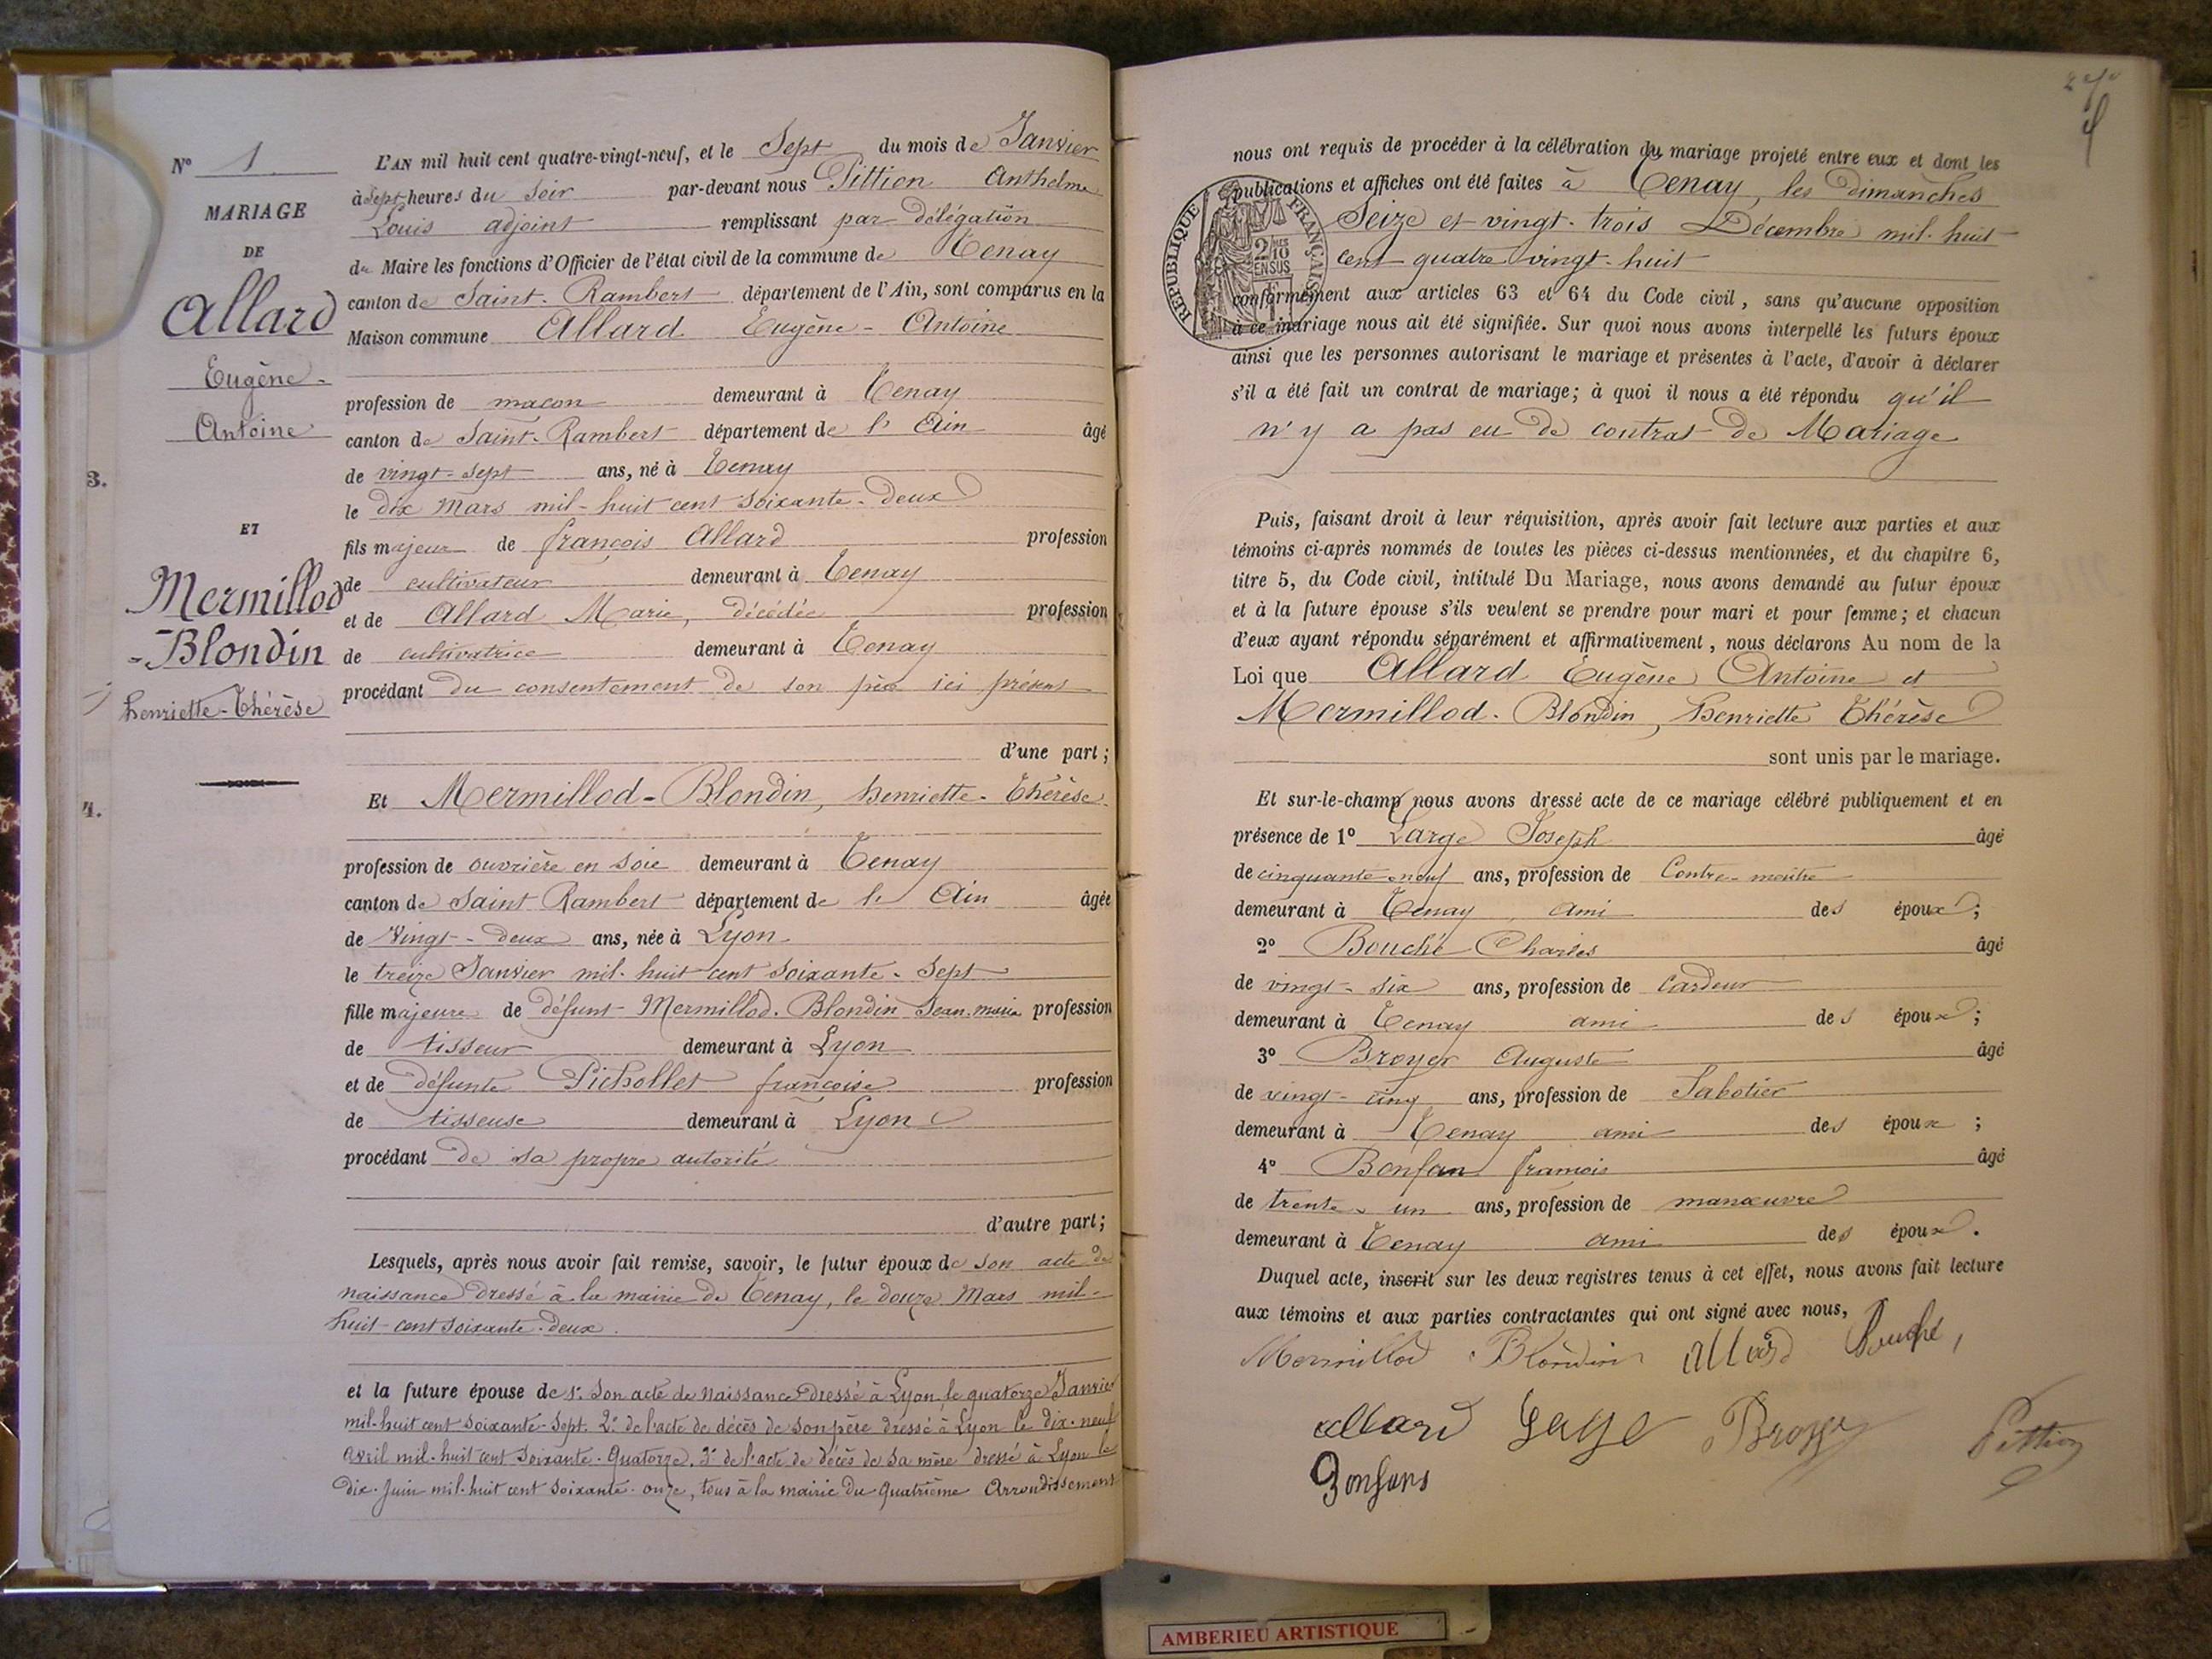 N° 1
MARIAGE
DE
Allard
Eugène-
Antoine
3.
ET
Mermillod
-Blondin
henriette-Thérèse
4.
L'AN mil huit cent quatre-vingt-neuf, et le Sept du mois de Janvier
à Sept heures du Soir par-devant nous Pittion Anthelme
Louis adjoint remplissant par délégation
du Maire les fonctions d'Officier de l'état civil de la commune de Tenay
canton de Saint-Rambert département de l'Ain, sont comparus en la
Maison commune Allard Eugène-Antoine
profession de maçon demeurant à Tenay
canton de Saint-Rambert département de l'Ain âgé
de vingt-sept ans, né à Tenay
le dix Mars mil-huit cent soixante-deux
fils majeur de françois Allard profession
de cultivateur demeurant à Tenay
et de Allard Marie, décédée profession
de cultivatrice demeurant à Tenay
procédant du consentement de son père ici présent
d'une part;
Et Mermillod-Blondin, henriette-Thérèse
profession de ouvrière en soie demeurant à Tenay
canton de Saint Rambert département de l'Ain âgée
de Vingt-deux ans, née à Lyon
le treize Janvier mil-huit cent soixante-sept
fille majeure de défunt Mermillod-Blondin Jean-marie profession
de tisseur demeurant à Lyon
et de défunte Pichollet françoise profession
de tisseuse demeurant à Lyon
procédant de sa propre autorité
d'autre part;
Lesquels, après nous avoir fait remise, savoir, le futur époux de son acte de
naissance dressé à la mairie de Tenay, le douze Mars mil-
huit-cent soixante-deux.
et la future épouse de 1° Son acte de naissance dressé à Lyon, le quatorze Janvier
mil-huit cent soixante-sept. 2° de l'acte de décès de son père dressé à Lyon le dix-neuf
avril mil-huit cent soixante-Quatorze, 3° de l'acte de décès de sa mère dressé à Lyon le
dix-Juin mil-huit cent soixante-onze, tous à la mairie du Quatrième Arrondissement
nous ont requis de procéder à la célébration du mariage projeté entre eux et dont les
publications et affiches ont été faites à Tenay, les dimanches
Seize et vingt-trois Décembre mil-huit
cent quatre vingt-huit
RÉPUBLIQUE FRANÇAISE
2/10 EN SUS
conformément aux articles 63 et 64 du Code civil, sans qu'aucune opposition
à ce mariage nous ait été signifiée. Sur quoi nous avons interpellé les futurs époux
ainsi que les personnes autorisant le mariage et présentes à l'acte, d'avoir à déclarer
s'il a été fait un contrat de mariage; à quoi il nous a été répondu qu'il
n'y a pas eu de contrat de Mariage
Puis, faisant droit à leur réquisition, après avoir fait lecture aux parties et aux
témoins ci-après nommés de toutes les pièces ci-dessus mentionnées, et du chapitre 6,
titre 5, du Code civil, intitulé Du Mariage, nous avons demandé au futur époux
et à la future épouse s'ils veulent se prendre pour mari et pour femme; et chacun
d'eux ayant répondu séparément et affirmativement, nous déclarons Au nom de la
Loi que Allard Eugène Antoine et
Mermillod-Blondin, henriette Thérèse
sont unis par le mariage.
Et sur-le-champ nous avons dressé acte de ce mariage célébré publiquement et en
présence de 1° Large Joseph âgé
de cinquante-neuf ans, profession de Contre-maître
demeurant à Tenay, ami des époux;
2° Bouché Charles âgé
de vingt-six ans, profession de Cardeur
demeurant à Tenay ami des époux;
3° Broyer Auguste âgé
de vingt-cinq ans, profession de Sabotier
demeurant à Tenay ami des époux;
4° Bonfan françois âgé
de trente-un ans, profession de manœuvre
demeurant à Tenay ami des époux.
Duquel acte, inscrit sur les deux registres tenus à cet effet, nous avons fait lecture
aux témoins et aux parties contractantes qui ont signé avec nous,
Mermillod Blondin Allard Bouché,
allard Large Broyer Pittion
Bonfans
AMBERIEU ARTISTIQUE